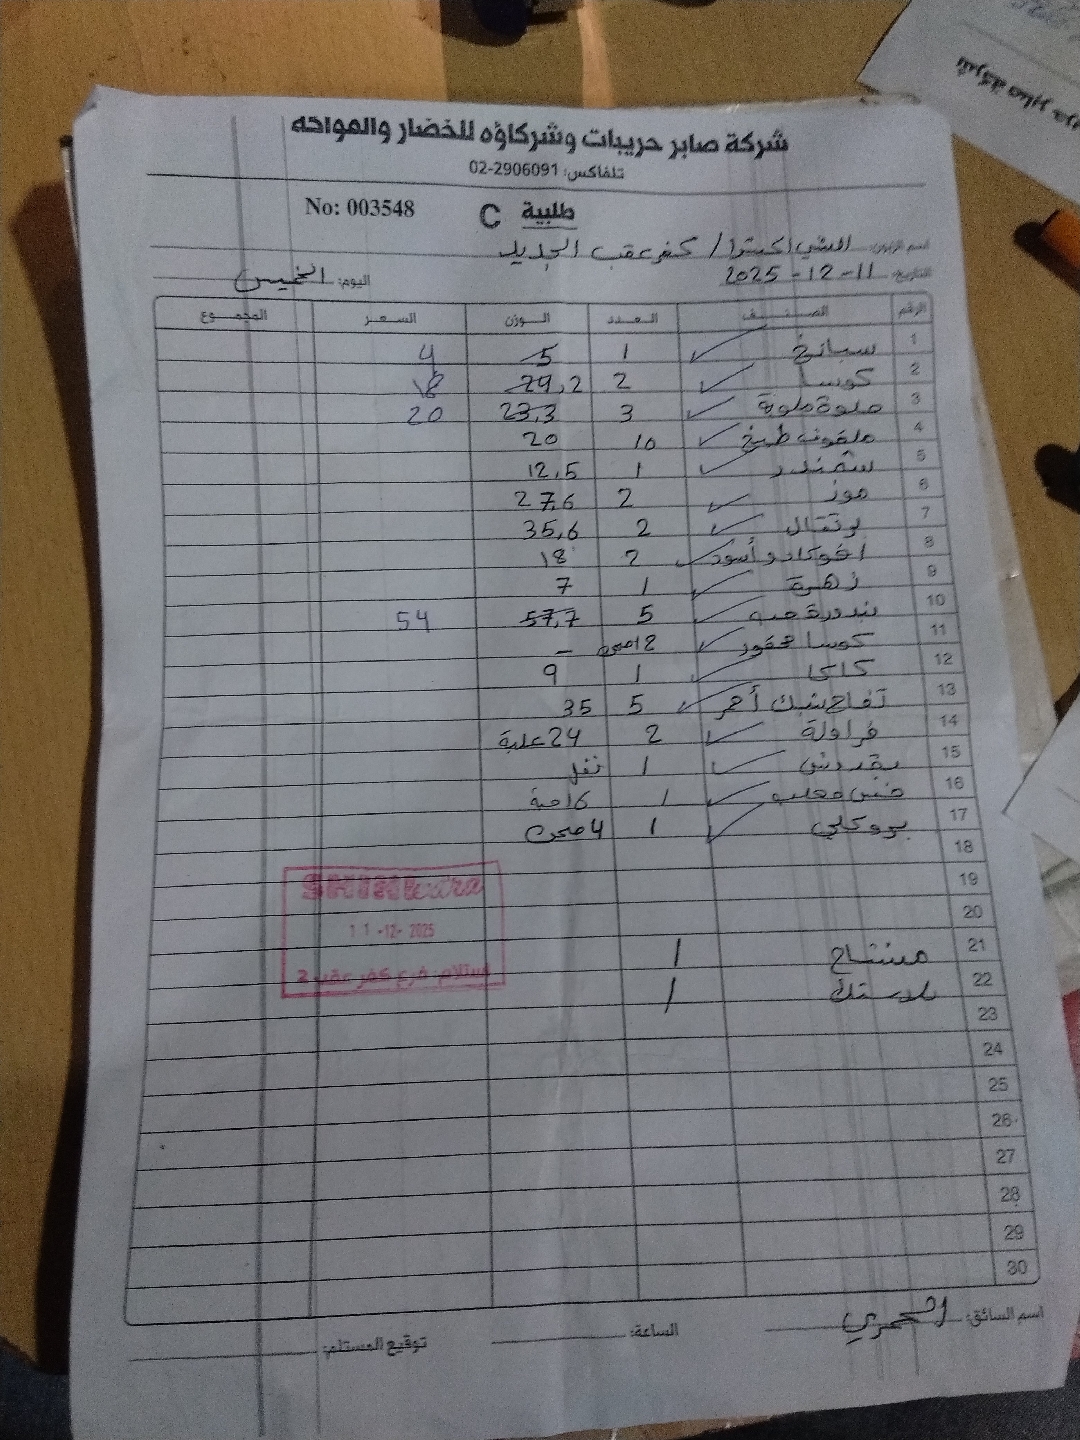 شركة صابر حريبات وشركاؤه للخضار والفواكه
تلفاكس: 02-2906091
No: 003548 C طلبية
اسم الزبون: الشني اكسترا / كفر عقب الجديد
التاريخ: 11-12-2025 اليوم: الخميس
الرقم الصنف العدد الوزن السعر المجموع
1 سبانخ 1 5 4
2 كوسا 2 29,2 18
3 ملوة ملوة 3 23,3 20
4 ملفوف طبخ 10 20
5 شمندر 1 12,5
6 موز 2 27,6
7 برتقال 2 35,6
8 افوكادو أسود 2 18
9 زهرة 1 7
10 بندورة حبه 5 57,7 54
11 كوسا محفور 12صحن -
12 كاكا 1 9
13 تفاح أحمر 5 35
14 فراولة 2 24 علبة
15 بقدونس 1
16 خس 1 16 حبة
17 بروكلي 1 4 صحن
18
19
20
21 مشتاح 1
22 بلاستك 1
23
24
25
26
27
28
29
30
SHINI extra
11-12-2025
إستلام: فرع كفر عقب 2
اسم السائق: الساعة: توقيع المستلم: